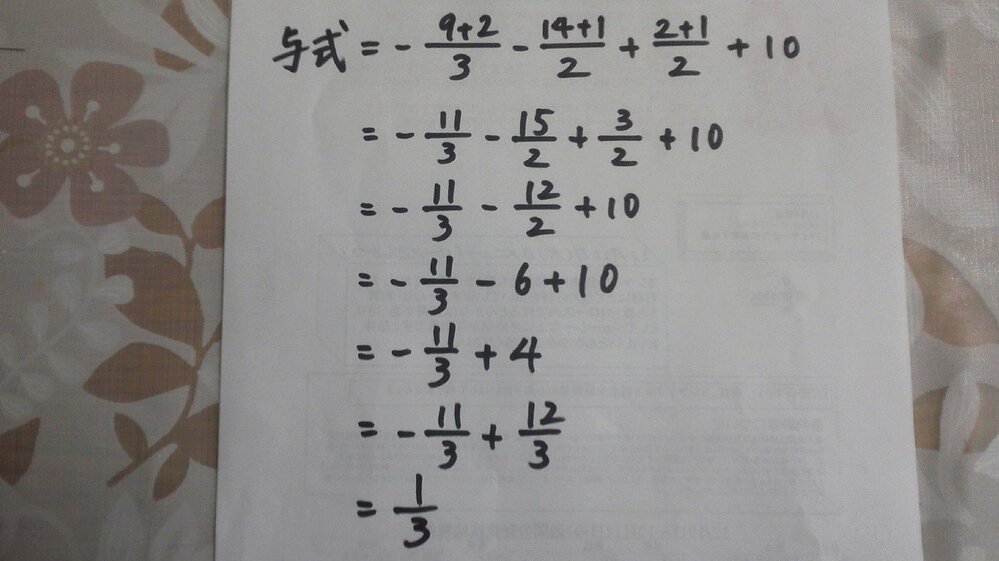 与式 = - \frac{9+2}{3} - \frac{14+1}{2} + \frac{2+1}{2} + 10
= - \frac{11}{3} - \frac{15}{2} + \frac{3}{2} + 10
= - \frac{11}{3} - \frac{12}{2} + 10
= - \frac{11}{3} - 6 + 10
= - \frac{11}{3} + 4
= - \frac{11}{3} + \frac{12}{3}
= \frac{1}{3}